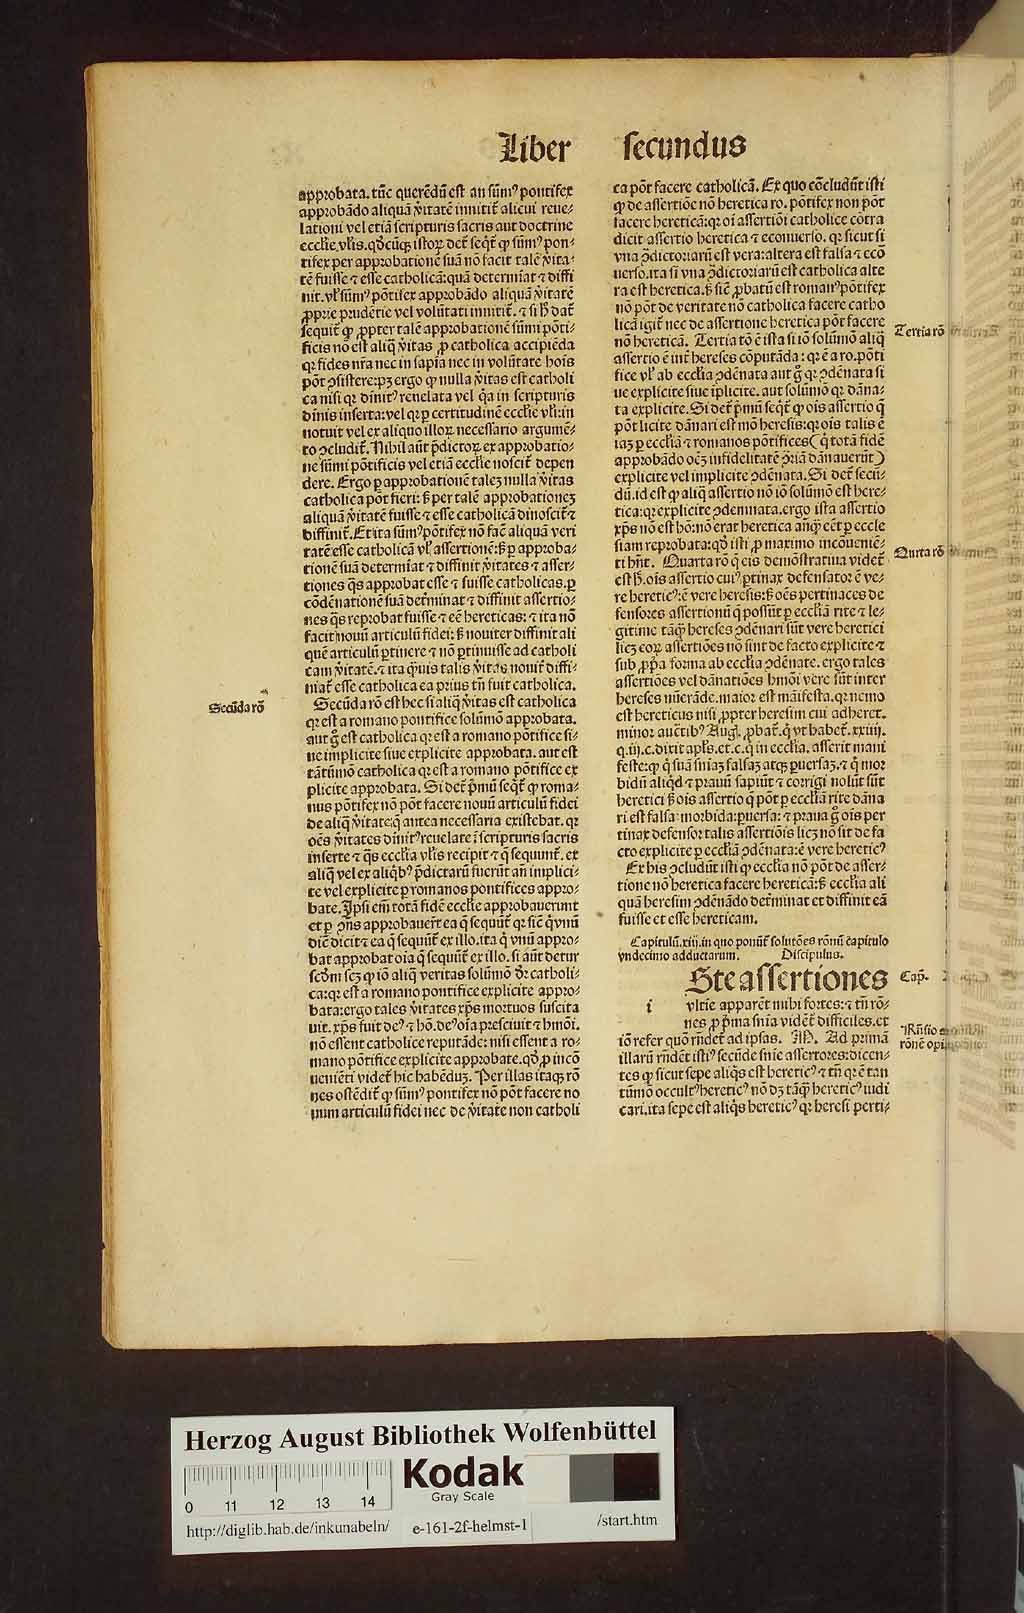 Liber secundus
approbata. tūc querēdū est an sūmꝰ pontifex
approbādo aliquā v̄itatē innitit̄ alicui reue⸗
lationi vel etiā scripturis sacris aut doctrine
eccl̄ie vl̄is. qd̄cūqꝫ istoꝝ det̄ seq̄t̄ ꝙ sūmꝰ pon⸗
tifex per approbationē suā nō facit talē v̄ita⸗
tē fuisse ⁊ esse catholicā: quā determīat ⁊ diffi
nit. vl̓ sūmꝰ pōtifex approbādo aliquā v̄itatē
ꝓprie prudētie vel volūtati innitit̄. ⁊ si h̓ dat̄
sequit̄ ꝙ ꝓpter talē approbationē sūmi pōti⸗
ficis nō est aliq̄ v̄itas ꝓ catholica accipiēda
qꝛ fides nr̄a nec in sapīa nec in volūtate hoīs
pōt ꝯsistere: pꝫ ergo ꝙ nulla v̄itas est catholi
ca nisi qꝛ diuinitꝰ reuelata vel q̓a in scripturis
diuīs inserta: vel qꝛ ꝑ certitudinē eccl̄ie vl̓i: in
notuit vel ex aliquo illoꝝ necessario argumē⸗
to ꝯcludit̄. Nihil aūt p̄dictoꝝ ex approbatio⸗
ne sūmi pōtificis vel etiā eccl̄ie noscit̄ depen
dere. Ergo ꝑ approbationē taleꝫ nulla v̄itas
catholica pōt fieri: sꝫ per talē approbationeꝫ
aliquā v̄itatē fuisse ⁊ esse catholicā dinoscit̄ ⁊
diffinit̄. Et ita sūmꝰ pōtifex nō fac̄ aliquā veri
tatē esse catholicā vl̓ assertionē: sꝫ ꝑ approba⸗
tionē suā determīat ⁊ diffinit v̄itates ⁊ asser⸗
tiones q̄s approbat esse ⁊ fuisse catholicas. ꝑ
cōdēnationē suā det̄minat ⁊ diffinit assertio⸗
nes q̄s reprobat fuisse ⁊ eē hereticas: ⁊ ita nō
facit nouū articulū fidei: sꝫ nouiter diffinit ali
quē articulū ꝑtinere ⁊ nō ꝑtinuisse ad catholi
cam v̄itatē. ⁊ ita q̄uis talis v̄itas nouit̄ diffi⸗
niat̄ esse catholica ea prius tn̄ fuit catholica.
Secūda rō
Secūda rō est hec si aliq̄ v̄itas est catholica
qꝛ est a romano pontifice solūmō approbata.
aut g̊ est catholica qꝛ est a romano pōtifice si⸗
ue implicite siue explicite approbata. aut est
tātūmō catholica qꝛ est a romano pōtifice ex
plicite approbata. Si det̄ p̄mū seq̄t̄ ꝙ roma⸗
nus pōtifex nō pōt facere nouū articulū fidei
de aliq̄ v̄itate: q̄ antea necessaria existebat. qꝛ
oēs v̄itates diuinitꝰ reuelate ī scripturis sacris
inserte ⁊ q̄s eccl̄ia vl̓is recipit ⁊ q̄ sequunt̄. ex
aliq̄ vel ex aliq̄bꝰ p̄dictarū fuerūt an̄ implici⸗
te vel explicite ꝑ romanos pontifices appro⸗
bate. Ipsi em̄ totā fidē eccl̄ie approbauerunt
et ꝑ ꝯn̄s approbauer̄t ea q̄ sequūt̄ qꝛ sic̄ q̓ vnū
dic̄ dicit: ⁊ ea q̄ sequūt̄ ex illo. ita q̓ vnū appro⸗
bat approbat oīa q̄ sequūt̄ ex illo. si aūt detur
scd̄m scꝫ ꝙ iō aliq̄ veritas solūmō dr̄ catholi⸗
ca: qꝛ est a romano pontifice explicite appro⸗
bata: ergo tales v̄itates xp̄s mortuos suscita
uit. xp̄s fuit deꝰ ⁊ hō. deꝰ oīa presciuit ⁊ hmōi.
nō essent catholice reputāde: nisi essent a ro⸗
mano pōtifice explicite approbate. qd̓ ꝓ incō
ueniēti videt̄ hic habēduꝫ. Per illas itaqꝫ rō
nes ostēdit̄ ꝙ sūmꝰ pontifex nō pōt facere no
uum articulū fidei nec de v̄itate non catholi
ca pōt facere catholicā. Ex quo cōcludūt isti
ꝙ de assertiōe nō heretica ro. pōtifex non pōt
facere hereticā: qꝛ oī assertiōi catholice cōtra
dicit assertio heretica ⁊ econuerso. qꝛ sicut si
vna ꝯdictoriarū est vera: altera est falsa ⁊ ecō
uerso. ita si vna ꝯdictoriarū est catholica alte
ra est heretica. sꝫ sic̄ ꝓbatū est romanꝰ pōtifex
nō pōt de veritate nō catholica facere catho
licā igit̄ nec de assertione heretica pōt facere
Tertia rō
nō hereticā. Tertia rō ē ista si iō solūmō aliq̄
assertio ē int̄ hereses cōputāda: qꝛ ē a ro. pōti
fice vl̓ ab eccl̄ia ꝯdēnata aut g̊ qꝛ ꝯdēnata si
ue explicite siue īplicite. aut solūmō qꝛ dāna⸗
ta explicite. Si det̄ p̄mū seq̄t̄ ꝙ oīs assertio q̄
pōt licite dānari est mō heresis: qꝛ oīs talis ē
iaꝫ ꝑ eccl̄iā ⁊ romanos pōtifices (q̓ totā fidē
approbādo oēꝫ infidelitatē ꝯriā dānauerūt)
explicite vel implicite ꝯdēnata. Si det̄ secū⸗
dū. id est ꝙ aliq̄ assertio nō iō solūmō est here⸗
tica: qꝛ explicite ꝯdennata. ergo ista assertio
xp̄s nō est hō: nō erat heretica anq̄ eēt ꝑ eccle
siam reprobata: qd̓ isti ꝓ maximo incōueniē⸗
Qurta rō
ti hn̄t. Quarta rō q̄ eis demōstratiua videt̄
est h̓. oīs assertio cuiꝰ ꝑtinax defensator ē ve⸗
re hereticꝰ: ē vere heresis: sꝫ oēs pertinaces de
fensores assertionū q̄ possūt ꝑ eccl̄iā rite ⁊ le⸗
gitime tāq̄ hereses ꝯdēnari sūt vere heretici
licꝫ eoꝝ assertiōes nō sint de facto explicite ⁊
sub ꝓp̓a forma ab eccl̄ia ꝯdēnate. ergo tales
assertiōes vel dānatiōes hmōi vere sūt inter
hereses nūerāde. maior est māifesta. qꝛ nemo
est hereticus nisi ꝓpter heresim cui adheret.
minor auc̄tibꝰ Aug. ꝓbat̄. q̓ vt habet̄. xxiiij.
q. iij. c. dixit apl̄s. et. c. q̓ in eccl̄ia. asserit mani
feste: ꝙ q̓ suā sniaꝫ falsaꝫ atqꝫ ꝑuersaꝫ. ⁊ q̓ mor
bidū aliq̓d ⁊ prauū sapiūt ⁊ corrigi nolūt sūt
heretici sꝫ oīs assertio q̄ pōt ꝑ eccl̄iā rite dāna
ri est falsa: morbida: ꝑuersa: ⁊ praua g̊ oīs per
tinax defensor talis assertiōis licꝫ nō sit de fa
cto explicite ꝑ eccl̄iā ꝯdēnata: ē vere hereticꝰ
Ex his ꝯcludūt isti ꝙ eccl̄ia nō pōt de asser⸗
tione nō heretica facere hereticā: sꝫ eccl̄ia ali
quā heresim ꝯdēnādo det̄minat et diffinit eā
fuisse et esse hereticam.
Capitulū. xiij. in quo ponūt̄ solutōes rōnū ī capitulo
vndecimo adductarum. Discipulus.
Cap̄.
i Ste assertiones
vltīe apparēt mihi fortes: ⁊ tn̄ rō⸗
nes ꝓ p̄ma snīa vidēt̄ difficiles. et
Rn̄sio
rōnē opi.
iō refer quō rn̄det̄ ad ipsas. M. Ad primā
illarū rn̄dēt istiꝰ secūde snīe assertores: dicen⸗
tes ꝙ sicut sepe aliq̓s est hereticꝰ ⁊ tn̄ qꝛ ē tan
tūmo occultꝰ hereticꝰ nō dꝫ tāq̄ hereticꝰ iudi
cari. ita sepe est aliq̓s hereticꝰ qꝛ heresi perti⸗
Herzog August Bibliothek Wolfenbüttel
Kodak
Gray Scale
0 11 12 13 14
http://diglib.hab.de/inkunabeln/ e-161-2f-helmst-1 /start.htm